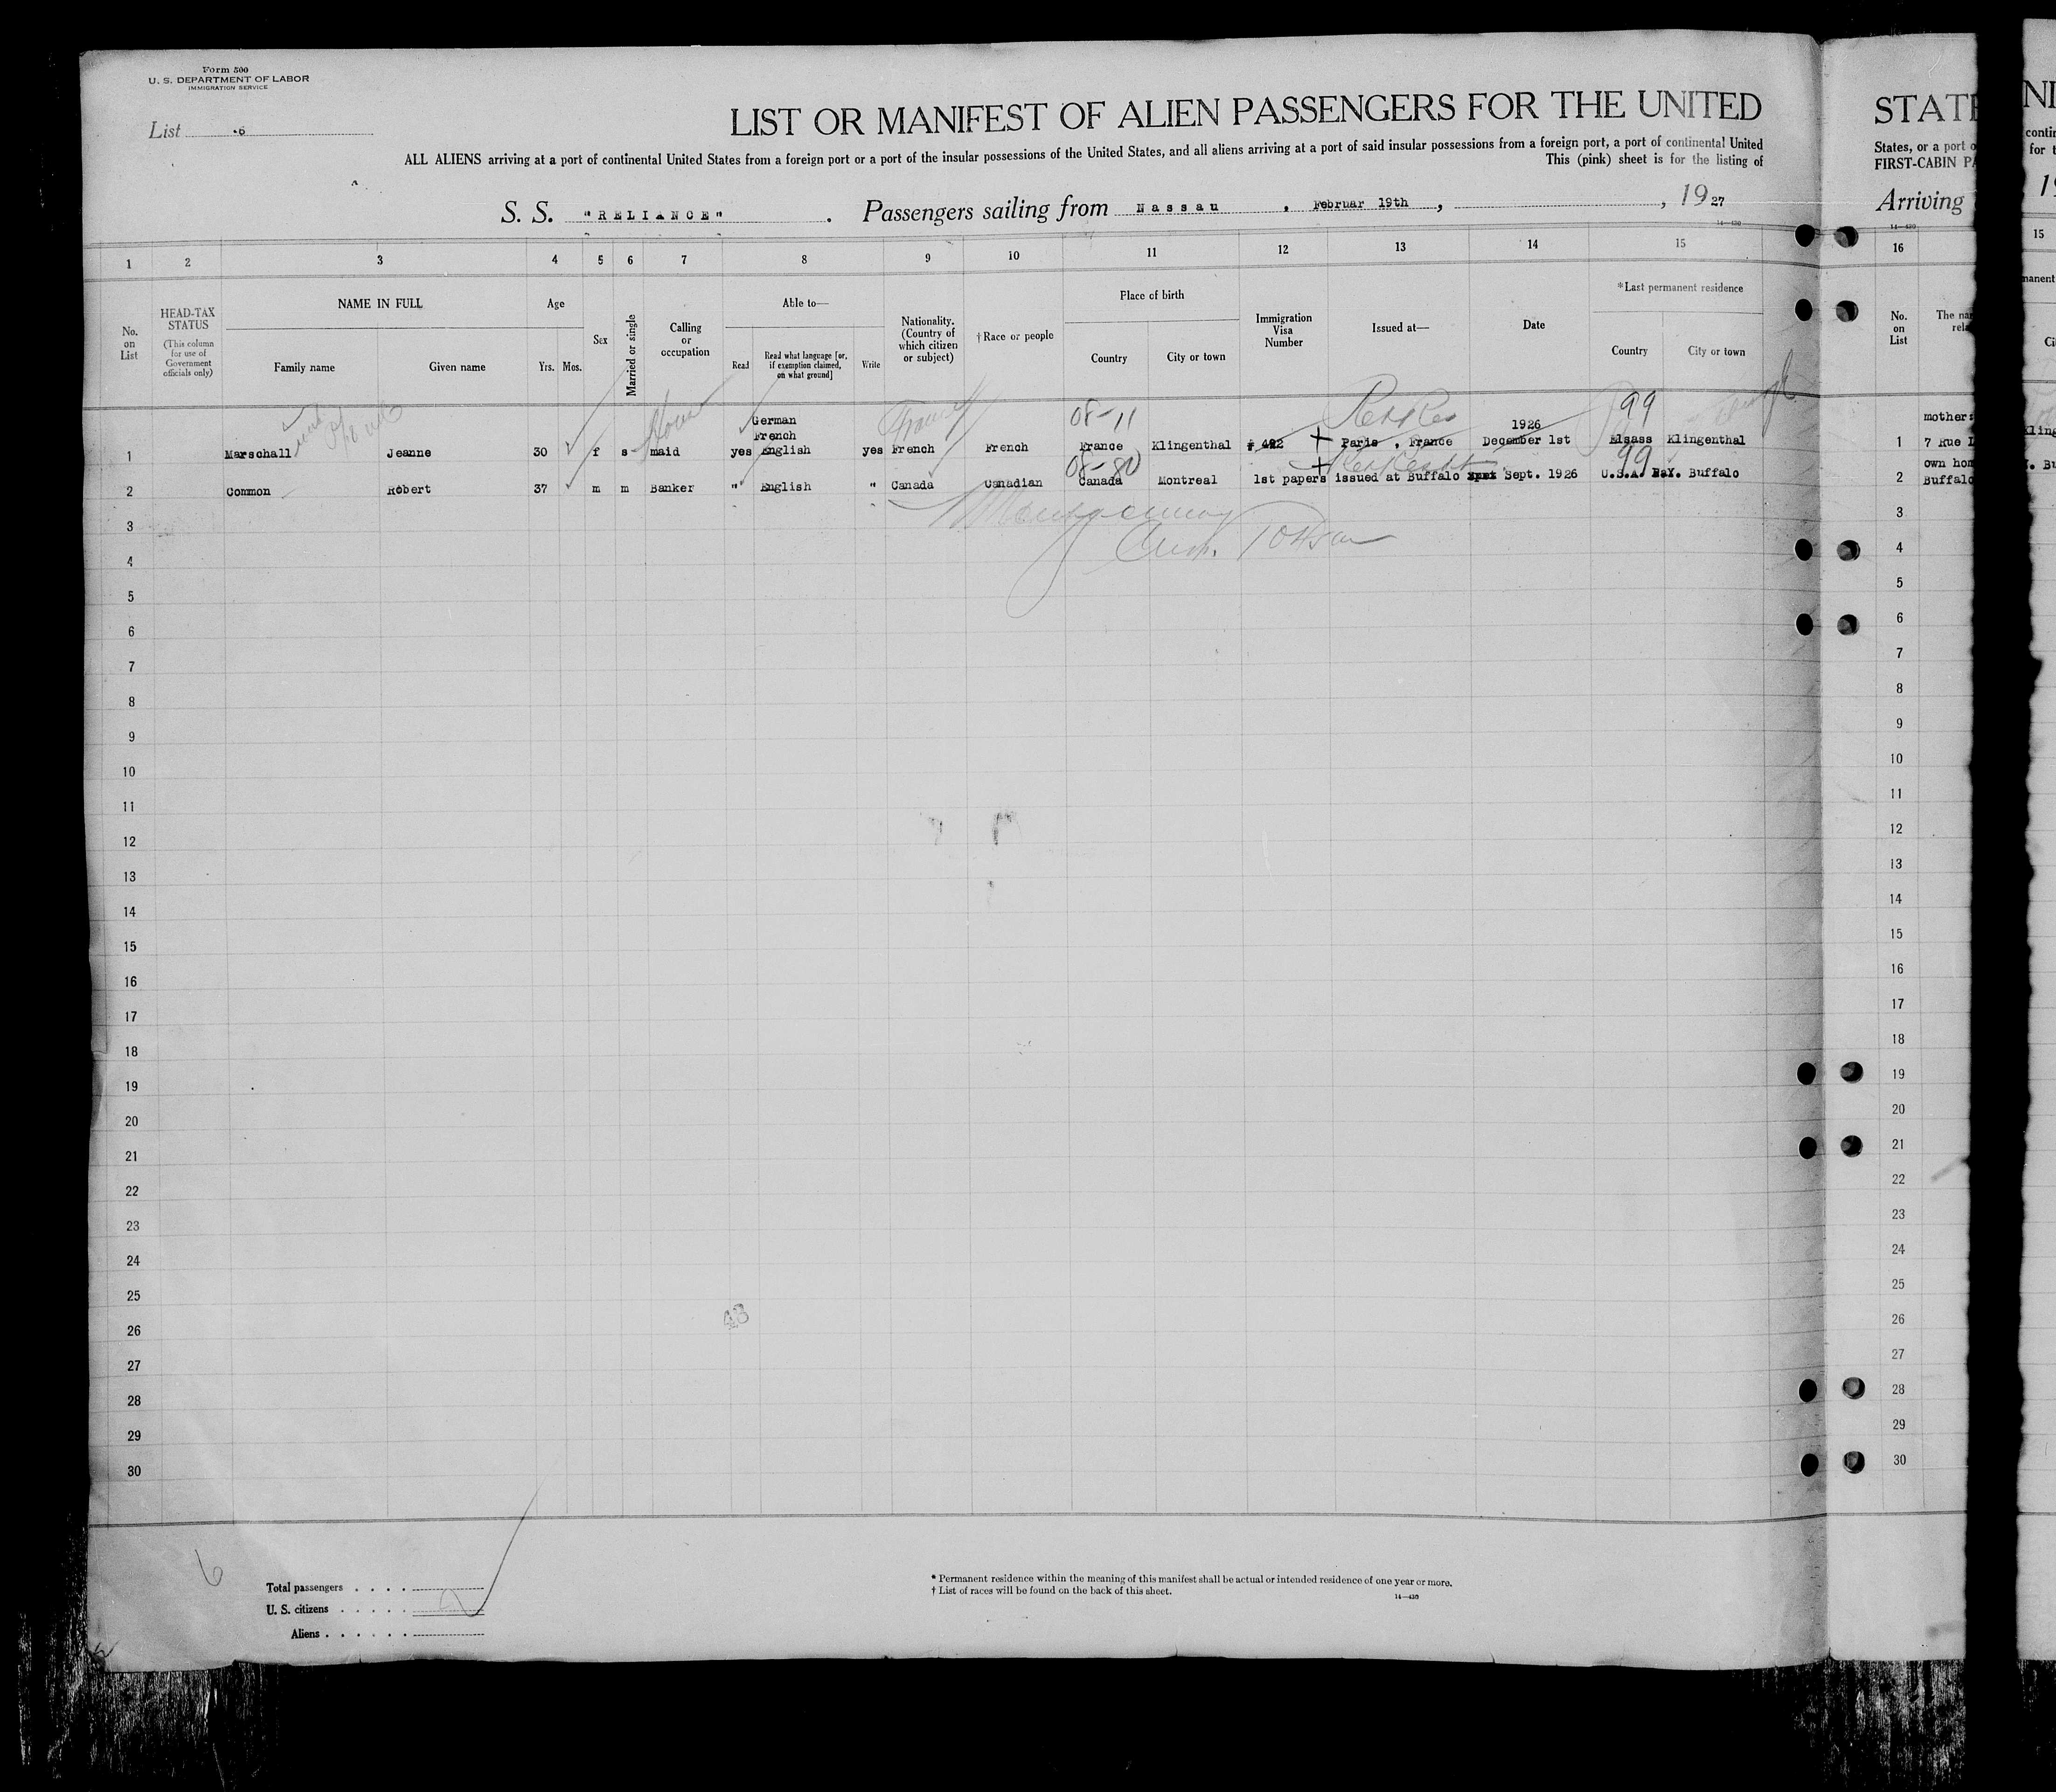 Form 500
U. S. DEPARTMENT OF LABOR
IMMIGRATION SERVICE
List 6
LIST OR MANIFEST OF ALIEN PASSENGERS FOR THE UNITED
ALL ALIENS arriving at a port of continental United States from a foreign port or a port of the insular possessions of the United States, and all aliens arriving at a port of said insular possessions from a foreign port, a port of continental United
This (pink) sheet is for the listing of
S. S. "RELIANCE" . Passengers sailing from Nassau , Februar 19th , , 1927
14—430
1 2 3 4 5 6 7 8 9 10 11 12 13 14 15
No. on List
HEAD-TAX STATUS
(This column for use of Government officials only)
NAME IN FULL
Family name Given name
Age
Yrs. Mos.
Sex
Married or single
Calling or occupation
Able to—
Read
Read what language [or, if exemption claimed, on what ground]
Write
Nationality. (Country of which citizen or subject)
†Race or people
Place of birth
Country City or town
Immigration Visa Number
Issued at—
Date
*Last permanent residence
Country City or town
08-11 99
German
French 1926
1 Marschall Jeanne 30 f s maid yes English yes French French France Klingenthal # 492 Paris , France December 1st Elsass Klingenthal
08-80 99
2 Common Robert 37 m m Banker " English " Canada Canadian Canada Montreal 1st papers issued at Buffalo Sept. 1926 U.S.A. Buffalo
3
4
5
6
7
8
9
10
11
12
13
14
15
16
17
18
19
20
21
22
23
24
25
26
27
28
29
30
43
6
Total passengers
U. S. citizens
Aliens
* Permanent residence within the meaning of this manifest shall be actual or intended residence of one year or more.
† List of races will be found on the back of this sheet.
14—430
STATE
States, or a port o
FIRST-CABIN PA
Arriving
14—430
16
No. on List
The na
rela
mother
1 7 Rue
own hom
2 Buffalo
3
4
5
6
7
8
9
10
11
12
13
14
15
16
17
18
19
20
21
22
23
24
25
26
27
28
29
30
NI
contin
for t
19
15
manent
Ci
Kling